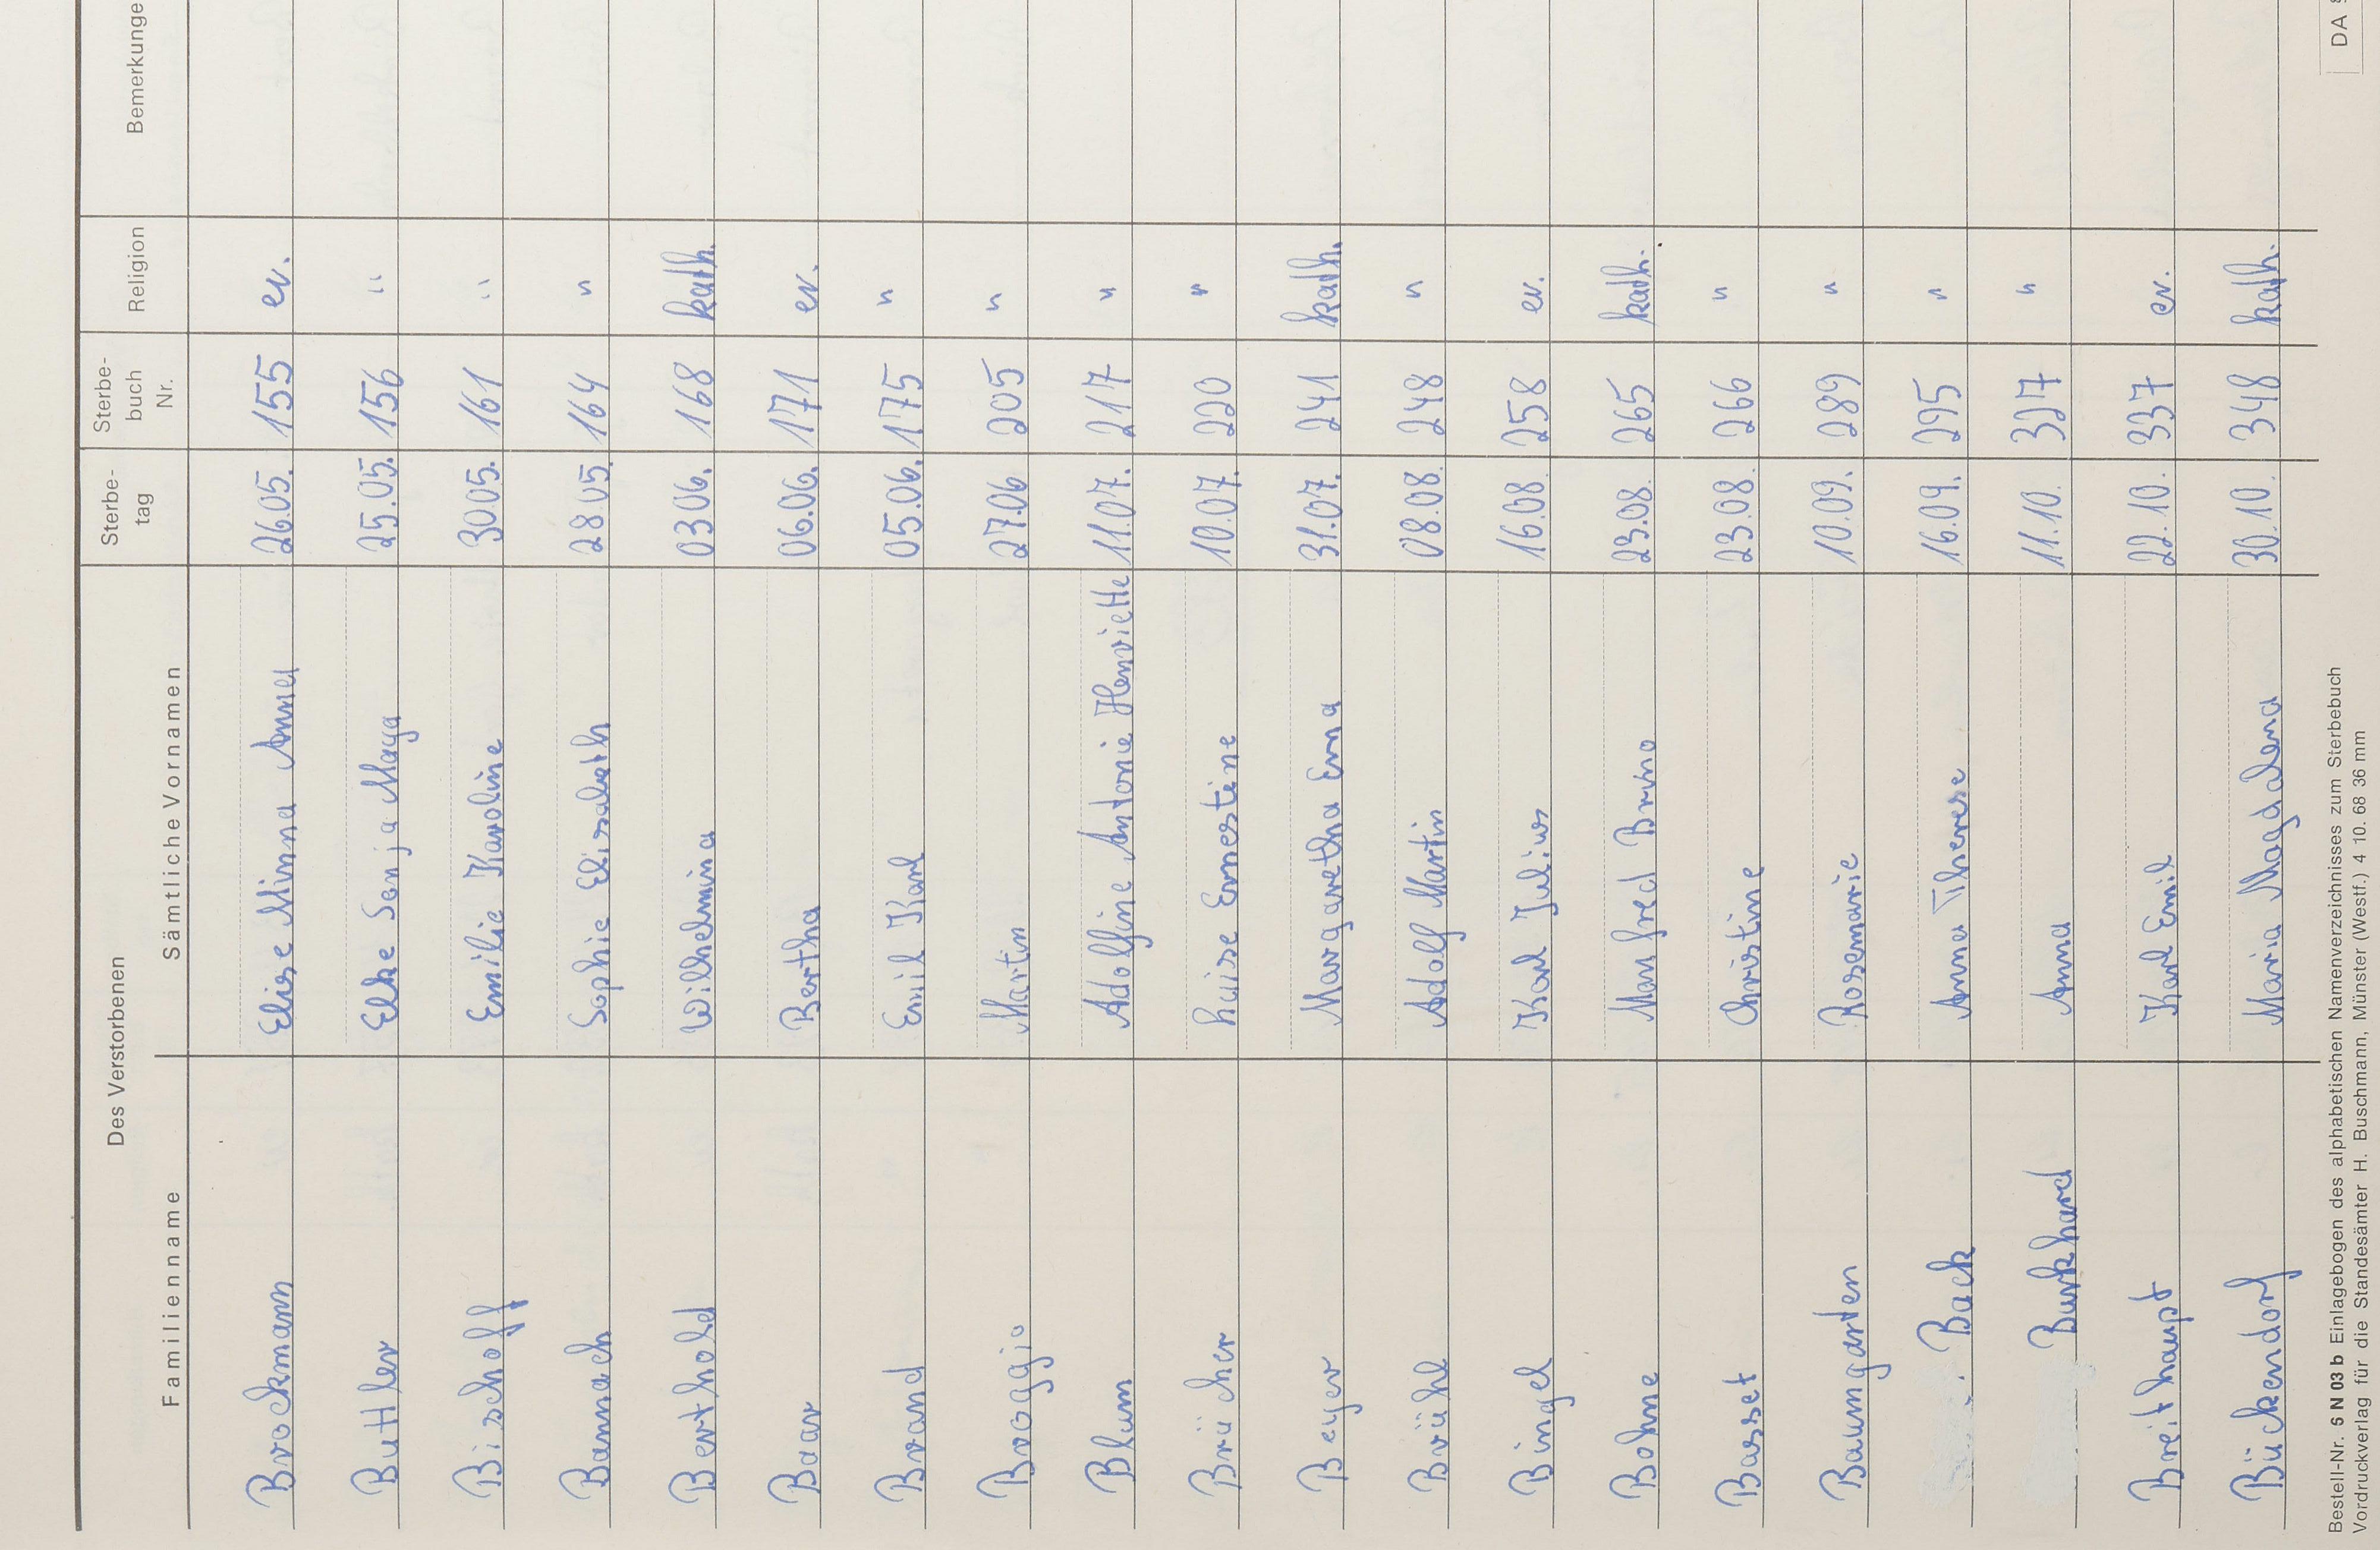 Des Verstorbenen
Familienname Sämtliche Vornamen Sterbe-tag Sterbe-buch Nr. Religion Bemerkunge
Brockmann Elise Minna Anna 26.05. 155 ev.
Buttler Elke Sonja Maya 25.05. 156 "
Bischoff Emilie Karoline 30.05. 161 "
Bannach Sophie Elisabeth 28.05. 164 "
Berthold Wilhelmina 03.06. 168 kath.
Baar Bertha 06.06. 171 ev.
Brand Emil Karl 05.06. 175 "
Broggio Martin 27.06. 205 "
Blum Adolfine Antonie Henriette 11.07. 217 "
Brücher Luise Ernestine 10.07. 220 "
Beyer Margaretha Erna 31.07. 241 kath.
Brühl Adolf Martin 08.08. 248 "
Bingel Karl Julius 16.08. 258 ev.
Bohne Manfred Bruno 23.08. 265 kath.
Basset Christine 23.08. 266 "
Baumgarten Rosemarie 10.09. 289 "
Back Anna Therese 16.09. 295 "
Burkhard Anna 11.10. 327 "
Breithaupt Karl Emil 22.10. 337 ev.
Bückendorf Maria Magdalena 30.10. 348 kath.
Bestell-Nr. 5 N 03 b Einlagebogen des alphabetischen Namenverzeichnisses zum Sterbebuch
Vordruckverlag für die Standesämter H. Buschmann, Münster (Westf.) 4 10. 68 36 mm
DA